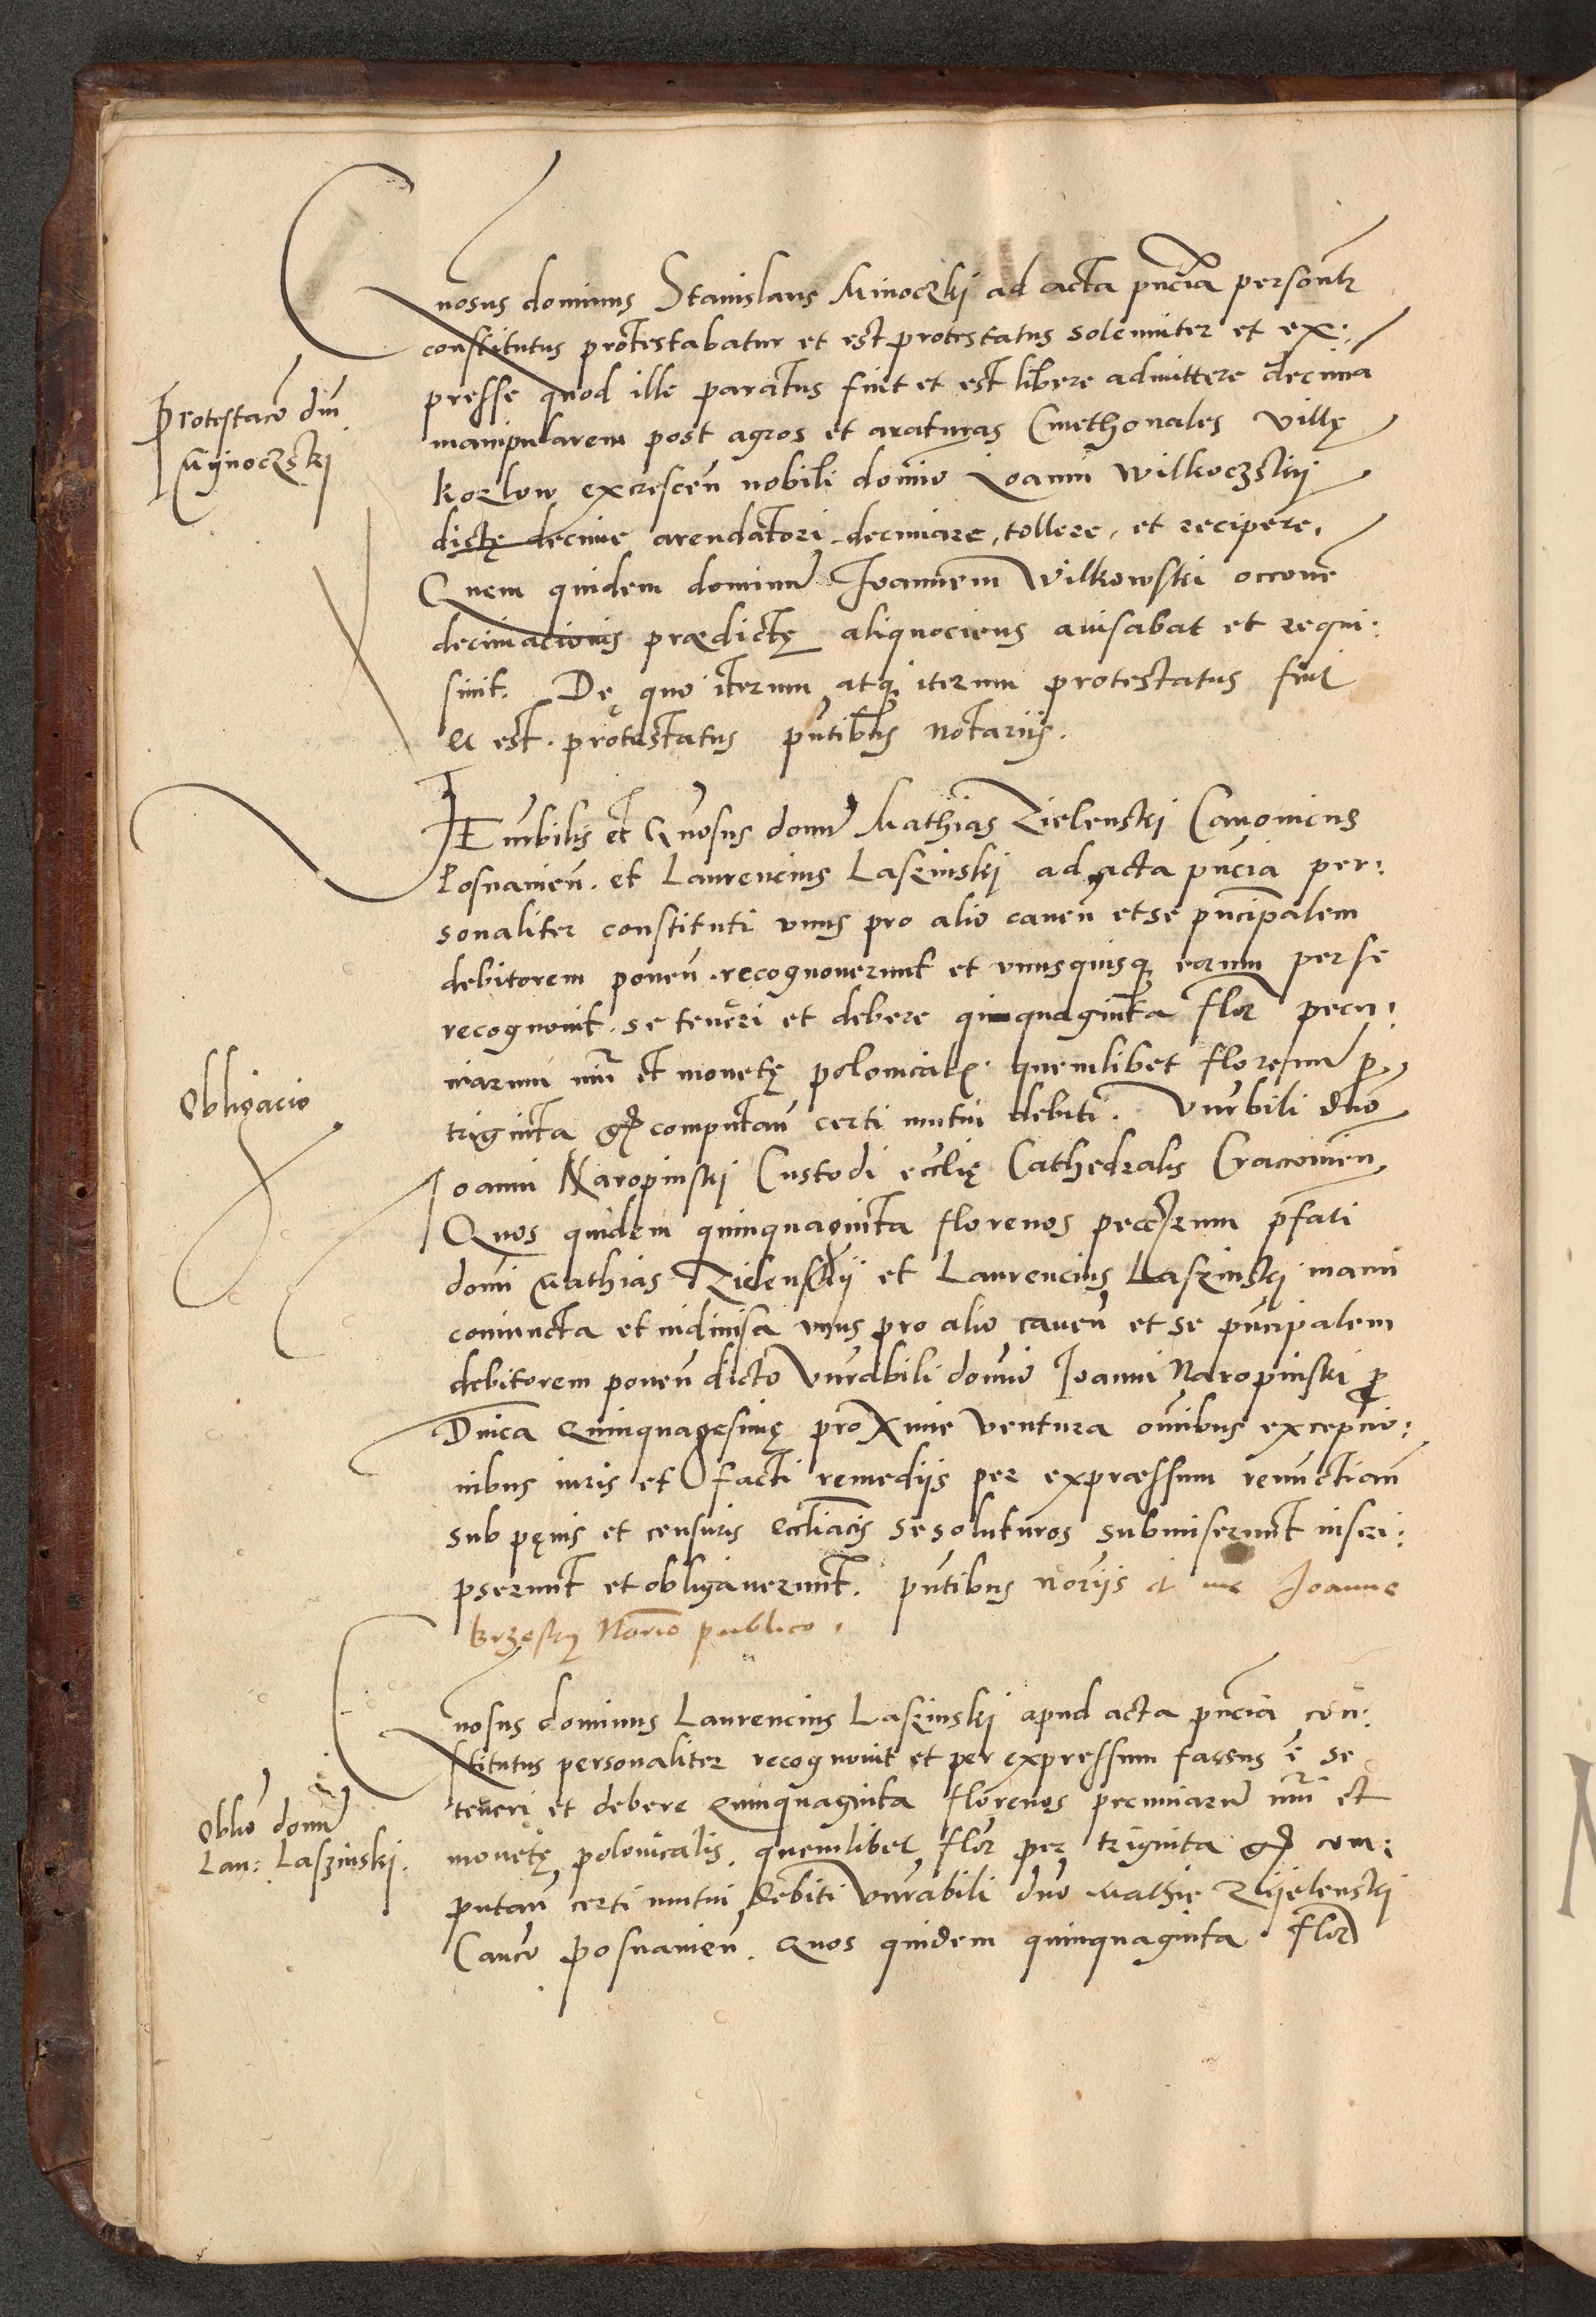 Gnosus dominus Stanislaus Minoczkj ad acta pncia personlr
constitutus protestabatur et est protestatus solemniter et ex:
presse quod ille paratus fuit et est libere admittere decima
manipularem post agros et araturas Cmethonales Villę
Kozlow excrescen nobili domino Joanni Wilkoczskij
dictę decime arendatori decimare, tollere, et recipere.
Quem quidem dominum Joannem Wilkowski occone
decimacionis prædictę aliquociens auisabat et requi:
siuit. Dę quo iterum atq iterum protestatus fuit
et est protestatus pntibus notariis.
Protestacio dni
Mÿnoczskj
Venrbilis et Gnosus domi Mathias Zielenskj Canonicus
Posnanien. et Laurencius Laszinskj ad acta pncia per:
sonaliter constituti vnus pro alio cauen et se pncipalem
debitorem ponen recognouerunt et vnusquisq eorum per se
recognouit se teneri et debere quinquaginta flor pecu:
niarum nri et monetę polonicalis quemlibet florenum p
triginta gr computan certi mutui debiti. Vnrbili dno
Joanni Naropinskj Custodi ecclię Cathedralis Cracouien
Quos quidem quinquaginta florenos pecctarum pfati
domi Mathias Zielenskij et Laurencius Laszinskj manu
coniuncta et indiuisa vnus pro alio cauen et se pncipalem
debitorem ponen dicto Vnrabili domino Joanni Naropinski pro
Dnica Quinquagesimę proxime ventura omnibus excepcio:
nibus iuris et facti remediis per expræssum renunctian
sub pęnis et censuris eccliacis se soluturos submiserunt inscri:
pserunt et obligauerunt. pntibus noriis et me Joanne
Brzeskj Norio publico.
Obligacio
Gnosus dominus Laurencius Laszinskj apud acta pncia con:
stitutus personaliter recognouit et per expressum fassus e se
teneri et debere Quinquaginta florenos pecuniarum nri et
monetę polonicalis, quemlibet flor per triginta gr com:
putan certi mutui debiti Vnrabili dno Mathie Zijelenskj
Canco posnanien. quos quidem quinquaginta flor
Oblio domi
Lau: Laszinskj.